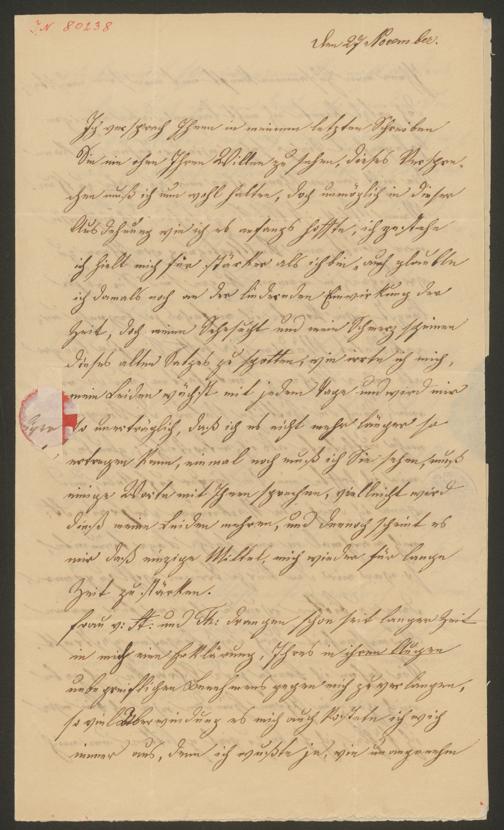 I.N 80238
den 27 November.
Ich versprach Ihnen in meinem letzten Schreiben
Sie nie ohne Ihren Willen zu sehen, dieses Verspre-
chen muß ich nun wohl halten, doch unmöglich in dieser
Ausdehnung wie ich es anfangs hoffte, ich gestehe
ich hielt mich für stärker als ich bin, auch glaubte
ich damals noch an der lindernden Einwirkung der
Zeit, doch meine Sehnsucht und mein Schmerz scheinen
dieses alten Satzes zu spotten, wie irrte ich mich,
mein Leiden wächst mit jedem Tage und wird mir
so unerträglich, daß ich es nicht mehr länger so
ertragen kann, einmal noch muß ich Sie sehen, muß
einige Worte mit Ihnen sprechen, vielleicht wird
dieß meine Leiden mehren, und dennoch scheint es
mir daß einzige Mittel, mich wieder für lange
Zeit zu stärken.
Frau v: A: und Th: drangen schon seit langer Zeit
in mich eine Erklärung, Ihres in ihren Augen
unbegreiflichen Benehmens gegen mich zu verlangen,
so viel Überwindung es mich auch kostete ich wich
immer aus, denn ich wußte ja, wie unangenehm